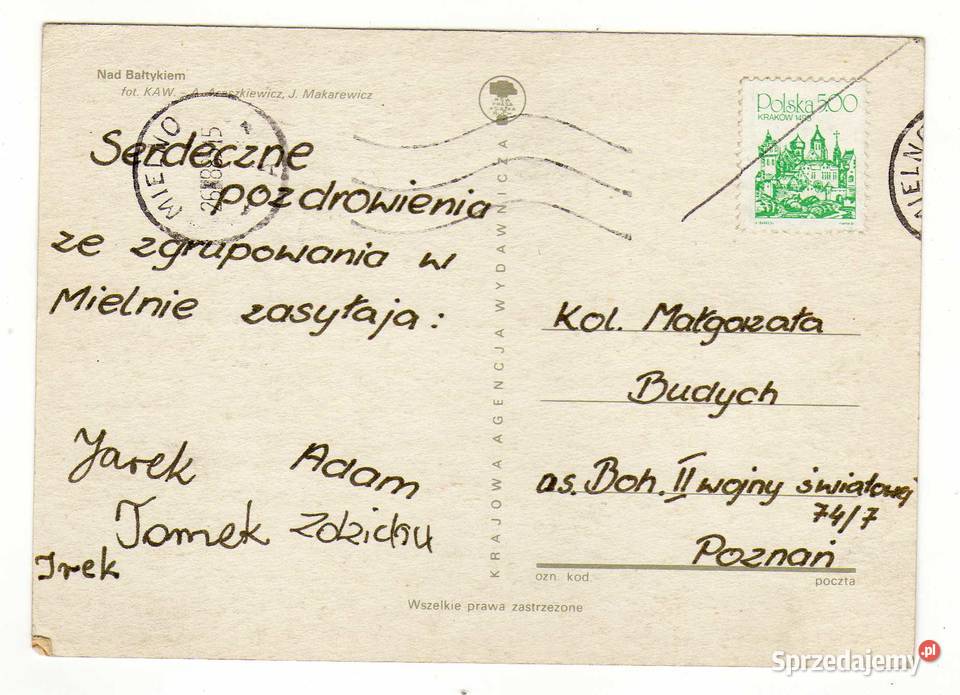 Nad Bałtykiem
fot. KAW. – A. Araszkiewicz, J. Makarewicz
MIELNO
Serdeczne
pozdrowienia
ze zgrupowania w
Mielnie zasyłają:
Jarek Adam
Tomek
Irek
KRAJOWA AGENCJA WYDAWNICZA
Polska 5.00
KRAKÓW 1493
MIELNO
Kol. Małgorzata
Budych
os. Boh. II wojny światowej
74/7
Poznań
ozn. kod. poczta
Wszelkie prawa zastrzeżone
Sprzedajemy.pl